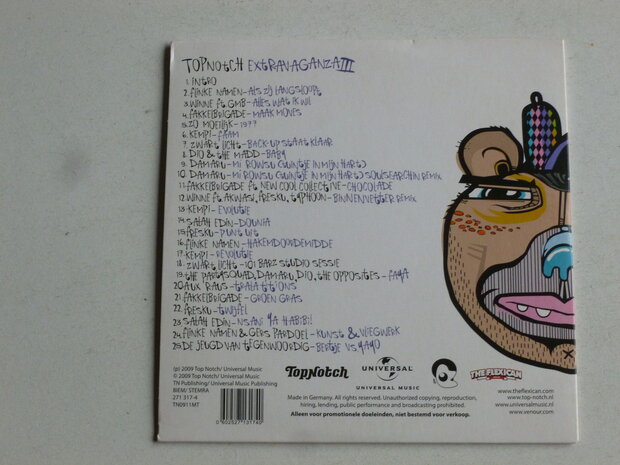 TOPNOTCH EXTRAVAGANZA III
1. INTRO
2. FLINKE NAMEN - ALS ZIJ LANGSLOOPT
3. WINNE FT. GMB - ALLES WAT IK WIL
4. FAKKELBRIGADE - MAAK MOVES
5. ZO MOEILIJK - 1977
6. KEMPI - FAAM
7. ZWART LICHT - BACK-UP STAAT KLAAR
8. DIO & THE MADD - BABY
9. DAMARU - MI ROWSU (TUINTJE IN MIJN HART)
10. DAMARU - MI ROWSU (TUINTJE IN MIJN HART) SOULSEARCHIN REMIX
11. FAKKELBRIGADE FT NEW COOL COLLECTIVE - CHOCOLADE
12. WINNE FT. AKWASI, FRESKU, TYPHOON - BINNENVETTER REMIX
13. KEMPI - EVOLUTIE
14. SALAH EDIN - DOUNIA
15. FRESKU - PUNT UIT
16. FLINKE NAMEN - HAKEMDOORDEMIDDE
17. KEMPI - REVOLUTIE
18. ZWART LICHT - 101 BARZ STUDIO SESSIE
19. THE PARTYSQUAD, DAMARU, DIO, THE OPPOSITES - FAYA
20. AUX RAUS - TRALATITIONS
21. FAKKELBRIGADE - GROEN GRAS
22. FRESKU - TWIJFEL
23. SALAH EDIN - NSANI YA HABIBI!
24. FLINKE NAMEN & GERS PARDOEL - KUNST & VLIEGWERK
25. DE JEUGD VAN TEGENWOORDIG - BERTJE VS. YAYO
(p) 2009 Top Notch/ Universal Music
© 2009 Top Notch/ Universal Music
TN Publishing/ Universal Music Publishing
BIEM/ STEMRA
271 317-4
TN0911MT
0 602527 131740
TopNotch
UNIVERSAL
UNIVERSAL MUSIC
THE FLEXICAN
Made in Germany. All rights reserved. Unauthorized copying, reproduction,
hiring, lending, public performance and broadcasting prohibited.
Alleen voor promotionele doeleinden, niet bestemd voor verkoop.
www.theflexican.com
www.top-notch.nl
www.universalmusic.nl
www.venour.com